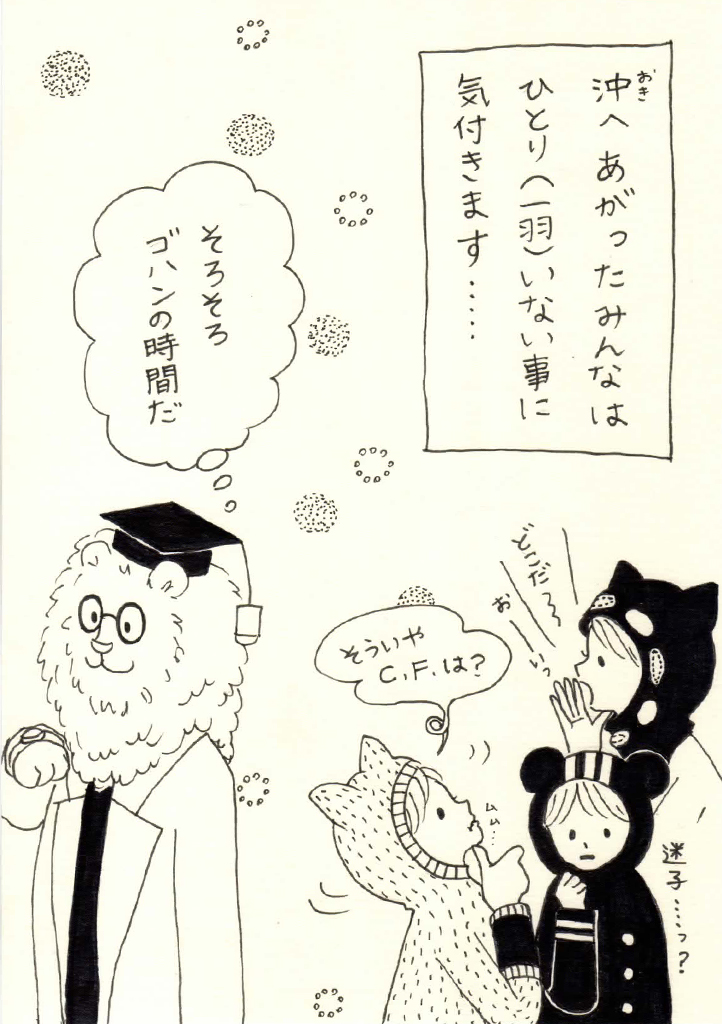 沖へあがったみんなは
おき
ひとり(一羽)いない事に
気付きます……
そろそろ
ゴハンの時間だ
どこだ～～
おーいっ
そういや
C.F.は?
ムム…
迷子……っ?